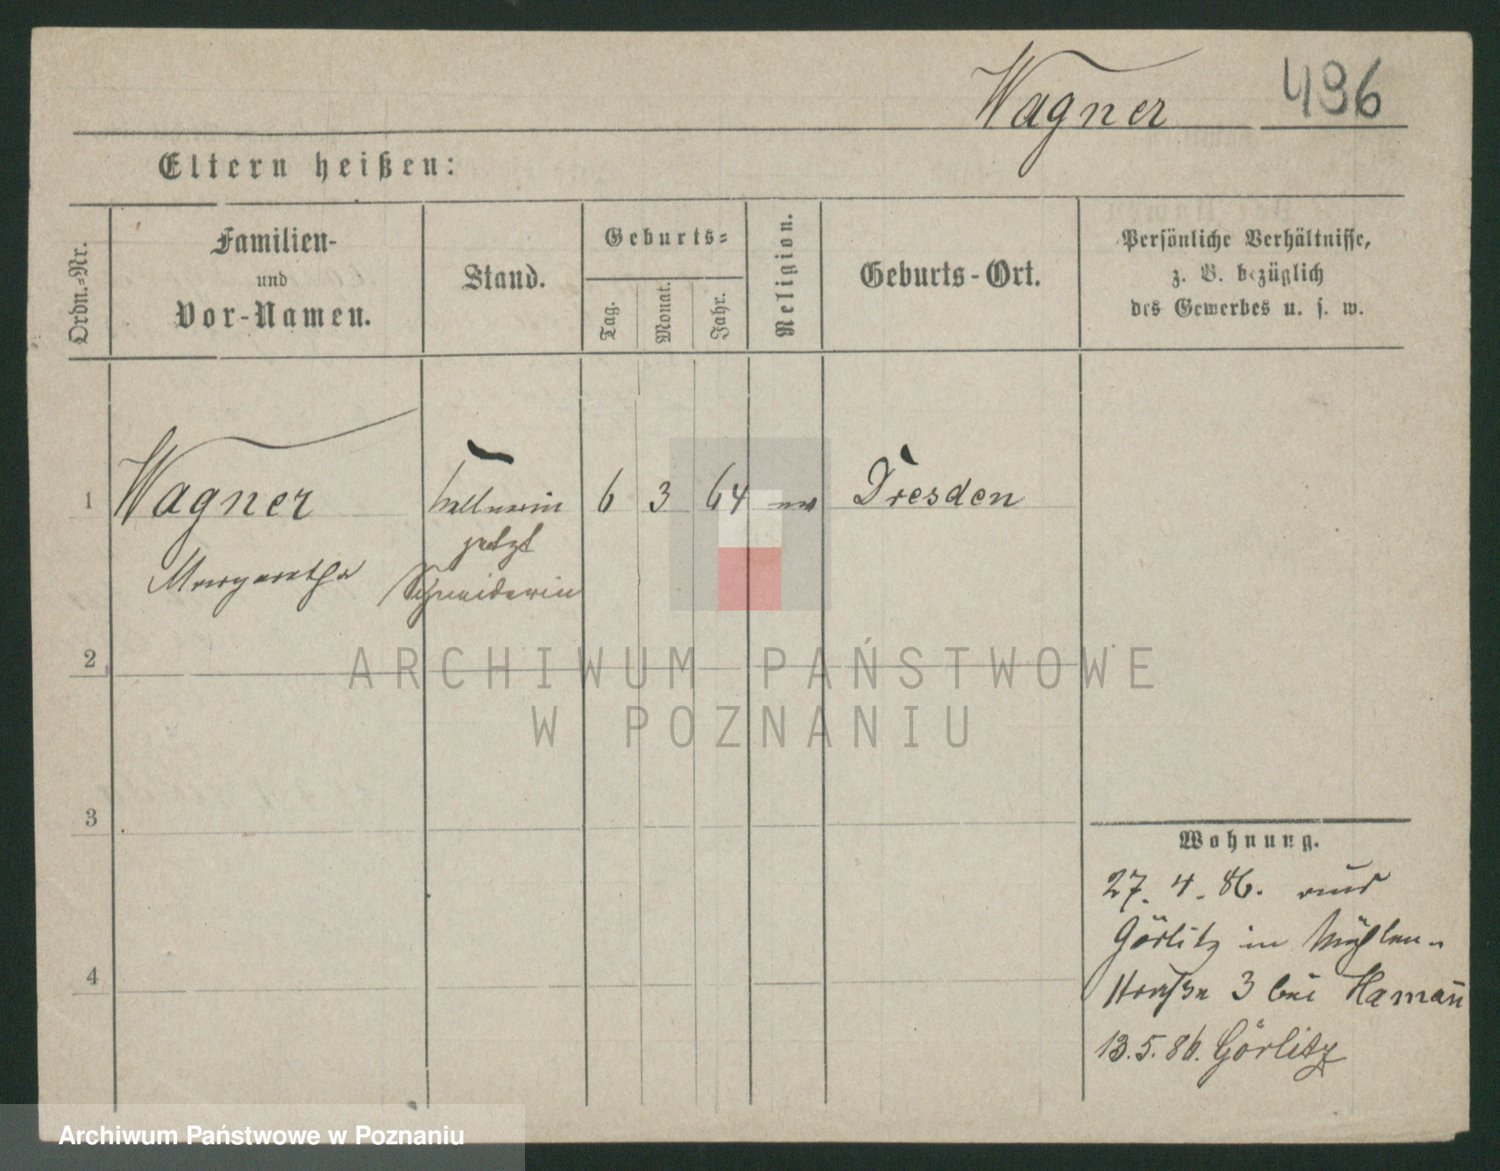 Wagner 496
Eltern heißen:
Ordn.-Nr.
Familien-
und
Vor-Namen.
Stand.
Geburts-
Tag.
Monat.
Jahr.
Religion.
Geburts-Ort.
Persönliche Verhältnisse,
z. B. bezüglich
des Gewerbes u. s. w.
1 Wagner Kellnerin 6 3 64 ev Dresden
jetzt
Margaretha Schneiderin
2
ARCHIWUM PAŃSTWOWE
W POZNANIU
3
Wohnung.
27. 4. 86. aus
Görlitz in Mühlen-
4
straße 3 bei Hamañ
13. 5. 86. Görlitz
Archiwum Państwowe w Poznaniu